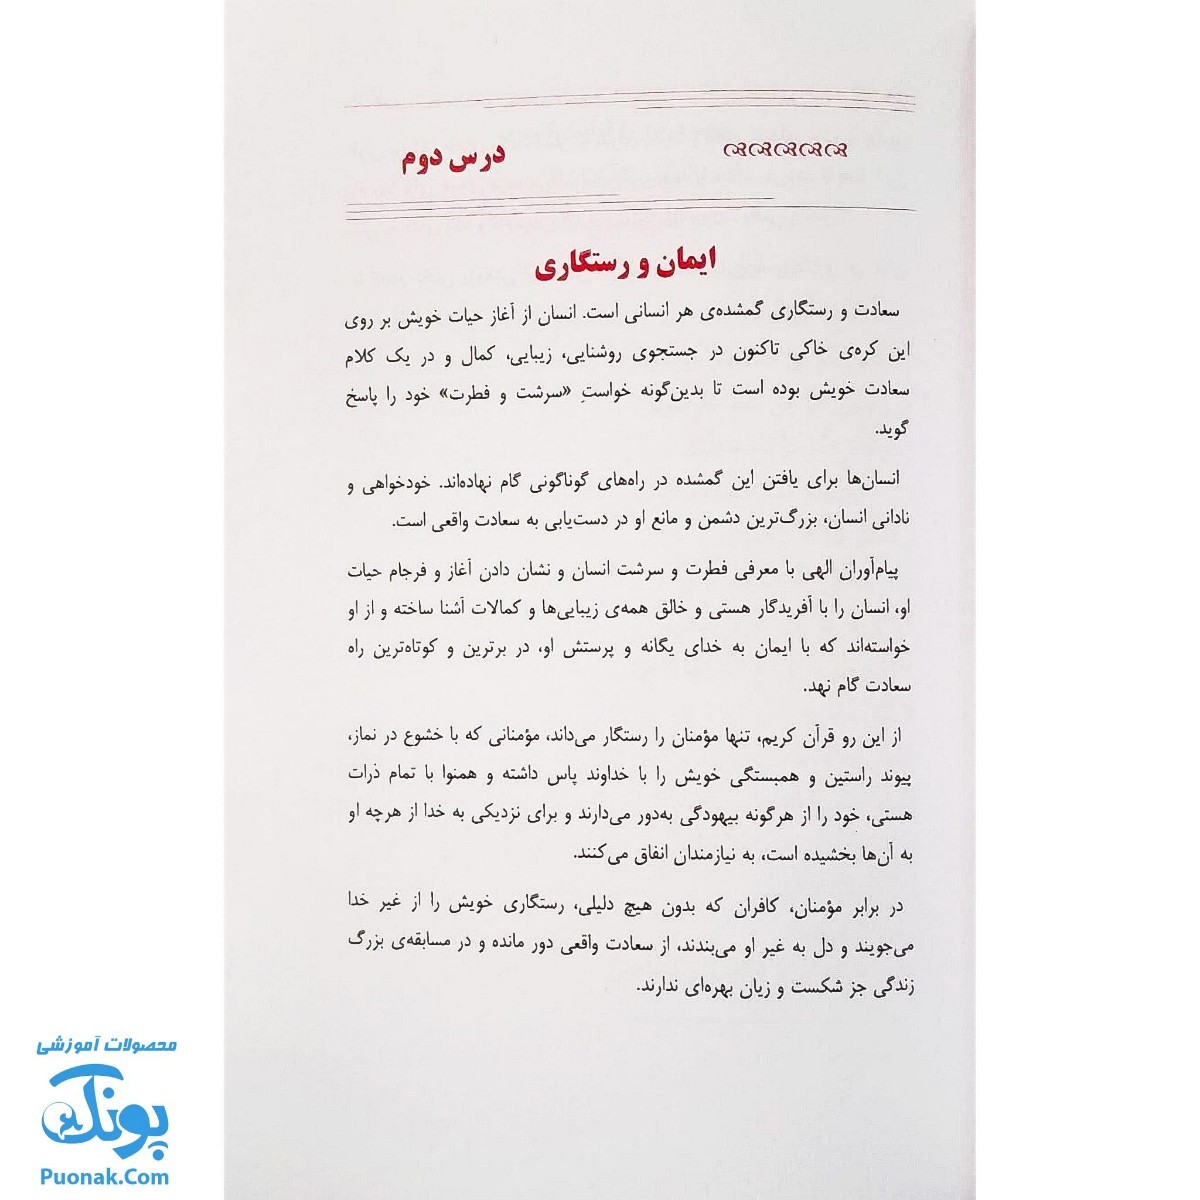 درس دوم
ایمان و رستگاری
سعادت و رستگاری گمشده‌ی هر انسانی است. انسان از آغاز حیات خویش بر روی
این کره‌ی خاکی تاکنون در جستجوی روشنایی، زیبایی، کمال و در یک کلام
سعادت خویش بوده است تا بدین‌گونه خواستِ «سرشت و فطرت» خود را پاسخ
گوید.
انسان‌ها برای یافتن این گمشده در راه‌های گوناگونی گام نهاده‌اند. خودخواهی و
نادانی انسان، بزرگ‌ترین دشمن و مانع او در دست‌یابی به سعادت واقعی است.
پیام‌آوران الهی با معرفی فطرت و سرشت انسان و نشان دادن آغاز و فرجام حیات
او، انسان را با آفریدگار هستی و خالق همه‌ی زیبایی‌ها و کمالات آشنا ساخته و از او
خواسته‌اند که با ایمان به خدای یگانه و پرستش او، در برترین و کوتاه‌ترین راه
سعادت گام نهد.
از این رو قرآن کریم، تنها مؤمنان را رستگار می‌داند، مؤمنانی که با خشوع در نماز،
پیوند راستین و همبستگی خویش را با خداوند پاس داشته و همنوا با تمام ذرات
هستی، خود را از هرگونه بیهودگی به‌دور می‌دارند و برای نزدیکی به خدا از هرچه او
به آن‌ها بخشیده است، به نیازمندان انفاق می‌کنند.
در برابر مؤمنان، کافران که بدون هیچ دلیلی، رستگاری خویش را از غیر خدا
می‌جویند و دل به غیر او می‌بندند، از سعادت واقعی دور مانده و در مسابقه‌ی بزرگ
زندگی جز شکست و زیان بهره‌ای ندارند.
محصولات آموزشی
پونک
Puonak.Com